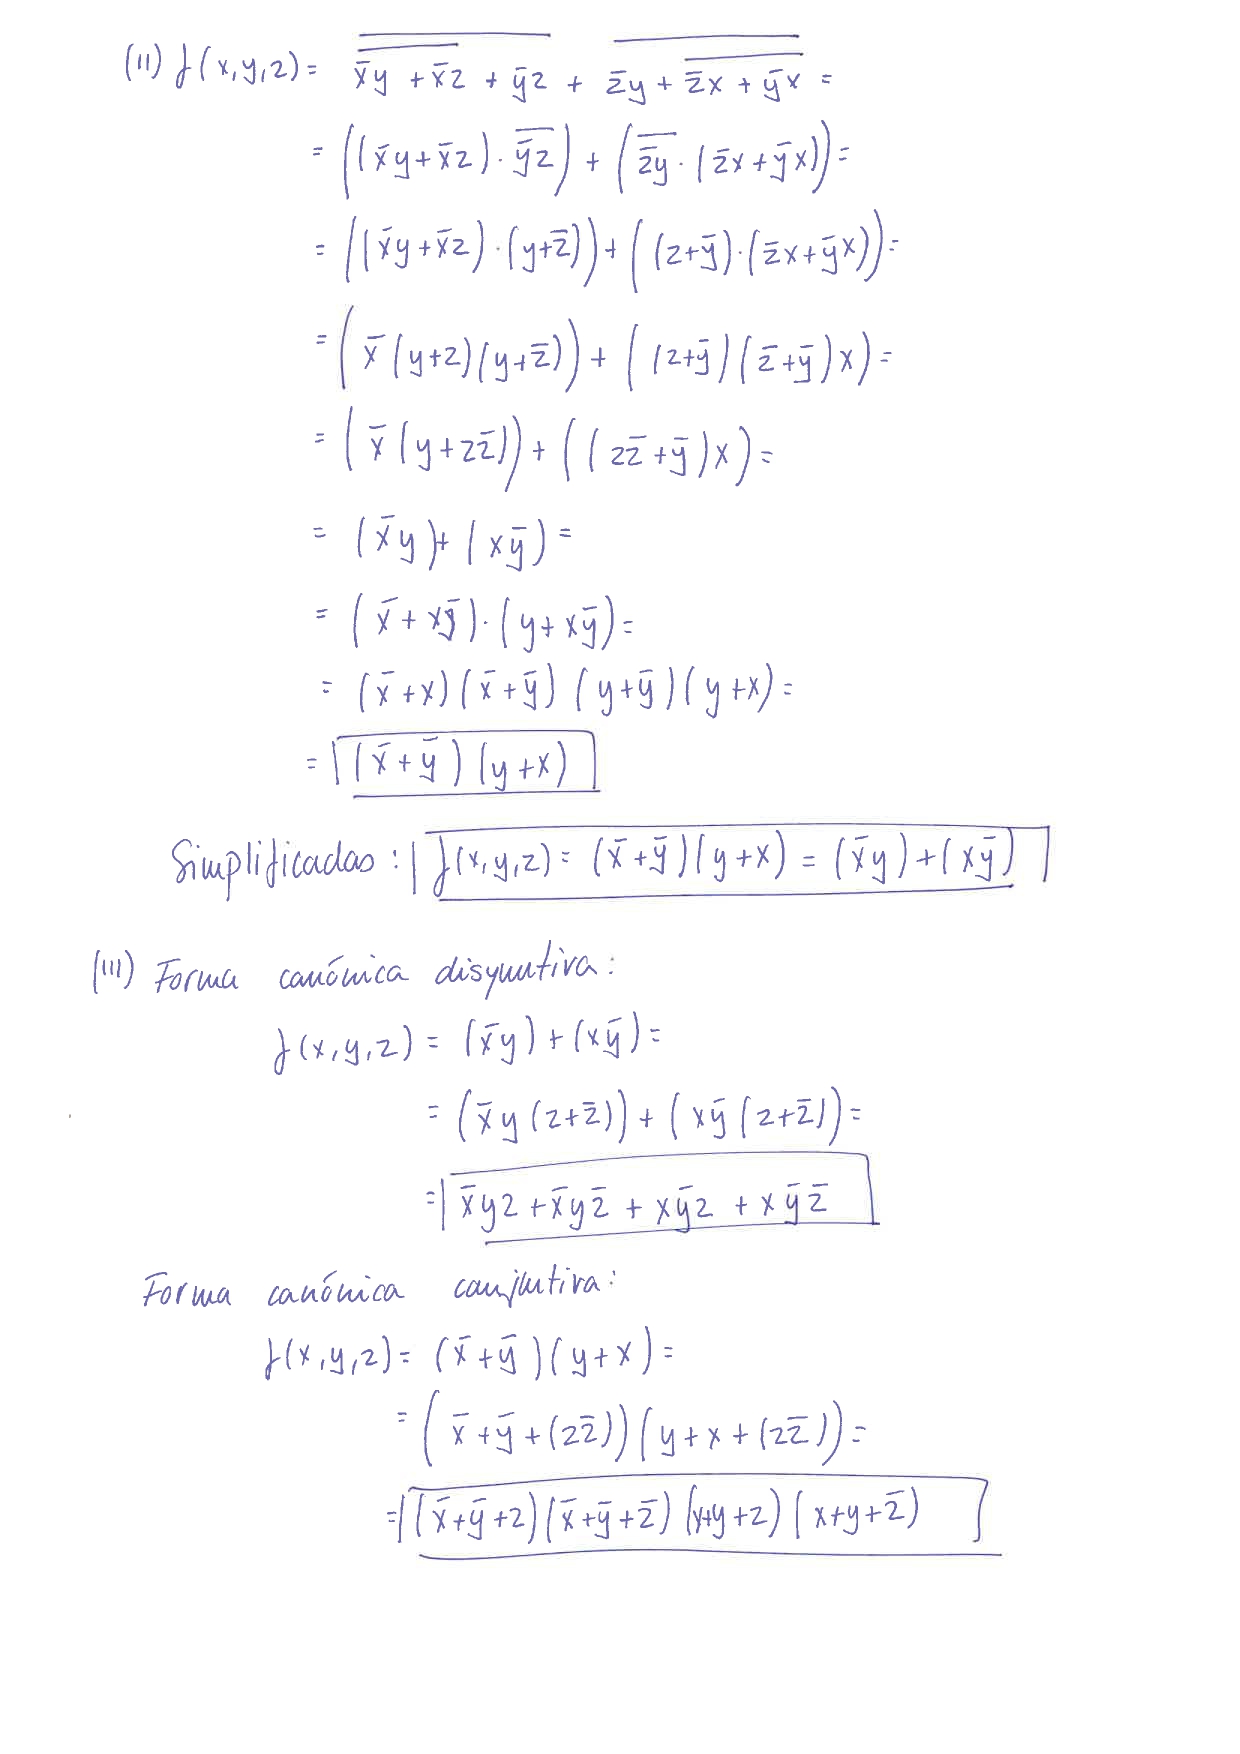 (II) f(x,y,z) = \overline{\overline{x̄y + x̄z} + ȳz} + \overline{z̄y + \overline{z̄x + ȳx}} =
= ((x̄y + x̄z) · \overline{ȳz}) + (\overline{z̄y} · (z̄x + ȳx)) =
= ((x̄y + x̄z) · (y + z̄)) + ((z + ȳ) · (z̄x + ȳx)) =
= (x̄(y+z)(y+z̄)) + ((z+ȳ)(z̄+ȳ)x) =
= (x̄(y+zz̄)) + ((zz̄+ȳ)x) =
= (x̄y) + (xȳ) =
= (x̄ + xȳ) · (y + xȳ) =
= (x̄+x)(x̄+ȳ)(y+ȳ)(y+x) =
= (x̄+ȳ)(y+x)
Simplificadas: f(x,y,z) = (x̄+ȳ)(y+x) = (x̄y)+(xȳ)
(III) Forma canónica disyuntiva:
f(x,y,z) = (x̄y) + (xȳ) =
= (x̄y(z+z̄)) + (xȳ(z+z̄)) =
= x̄yz + x̄yz̄ + xȳz + xȳz̄
Forma canónica conjuntiva:
f(x,y,z) = (x̄+ȳ)(y+x) =
= (x̄+ȳ+(zz̄))(y+x+(zz̄)) =
= (x̄+ȳ+z)(x̄+ȳ+z̄)(x+y+z)(x+y+z̄)